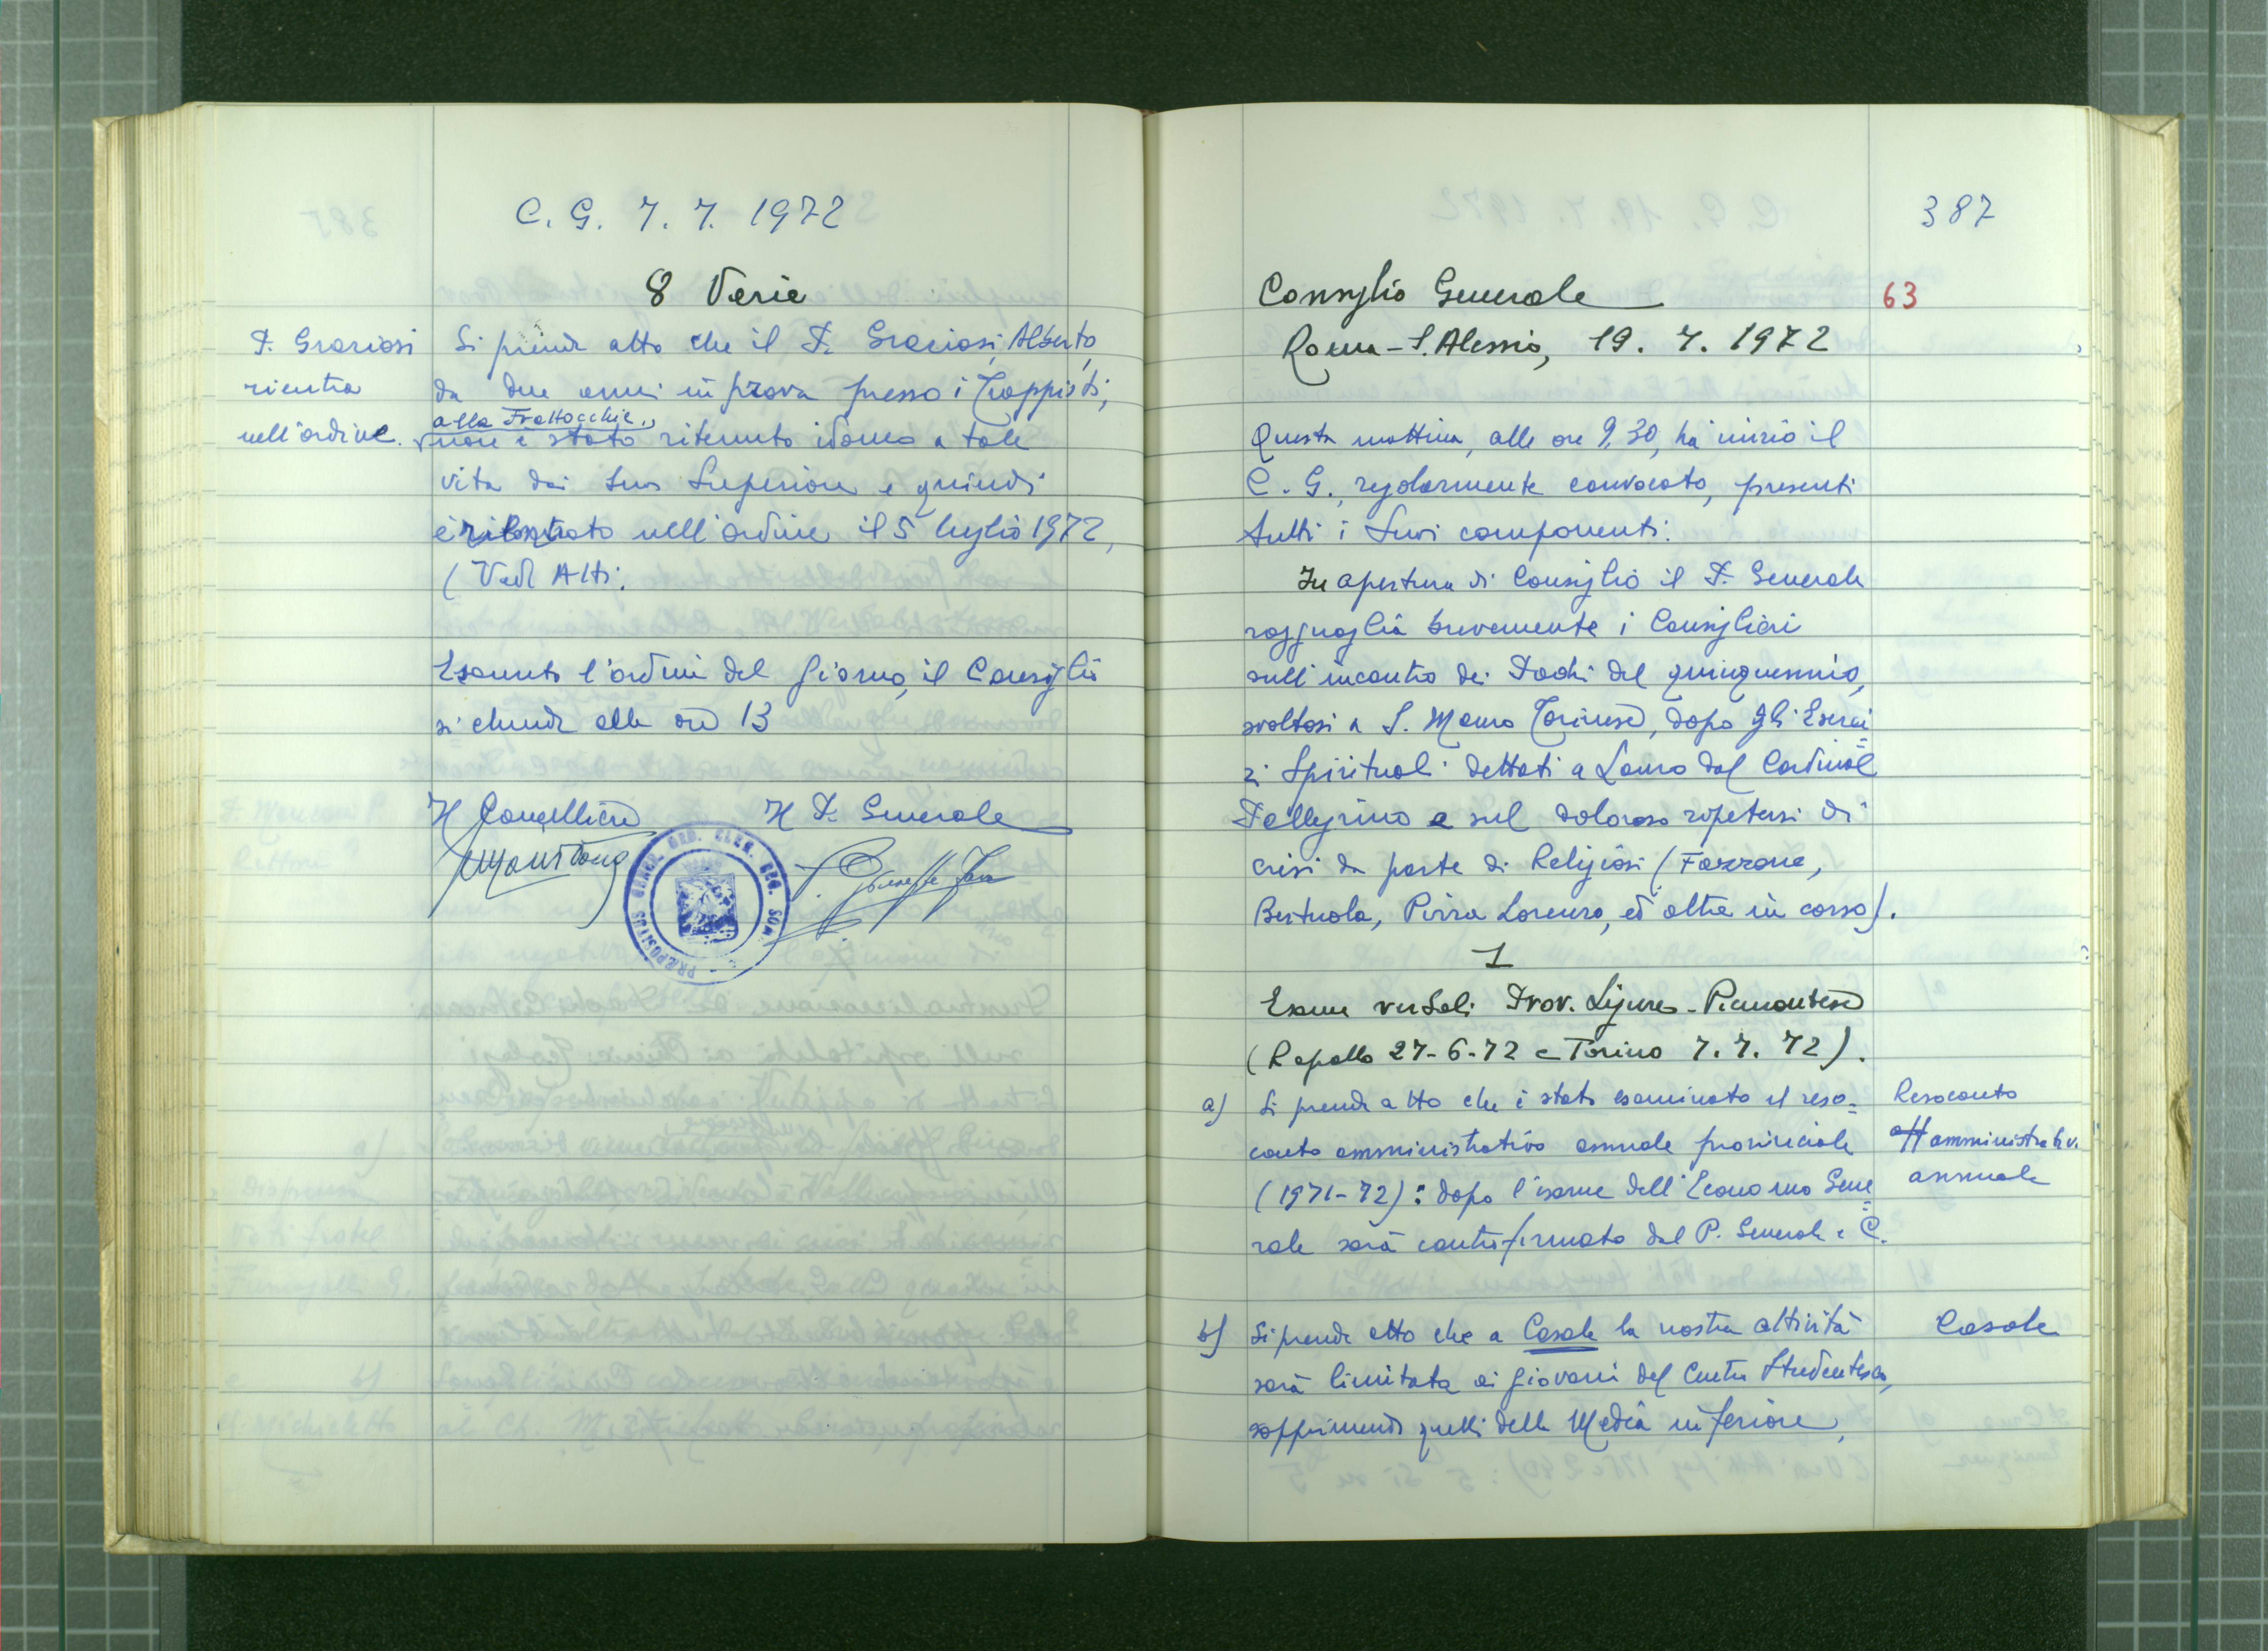 C. G. 7. 7. 1972
8 Varie
P. Graziosi
rientra
nell'ordine.
Si prende atto che il P. Graziosi Alberto,
da due anni in prova presso i Trappisti,
alla Frattocchie,
non è stato ritenuto idoneo a tale
vita dai suoi Superiori e quindi
è rientrato nell'ordine il 5 luglio 1972,
(Vedi Atti.
Esaurito l'ordine del giorno, il Consiglio
si chiude alle ore 13
Il Cancelliere Il P. Generale
P. Giuseppe Fava
PRÆPOSITUS GENER. ORD. CLER. REG. SOM.
387
Consiglio Generale
63
Roma - S. Alessio, 19. 7. 1972
Questa mattina, alle ore 9,30, ha inizio il
C. G., regolarmente convocato, presenti
tutti i suoi componenti.
In apertura di Consiglio il P. Generale
ragguaglia brevemente i Consiglieri
sull'incontro dei Padri del quinquennio,
svoltosi a S. Mauro Torinese, dopo gli Eserci=
zi Spirituali dettati a Lanzo dal Cardinale
Pellegrino e sul doloroso ripetersi di
crisi da parte di Religiosi (Fazzone,
Bertuola, Pirra Lorenzo, ed altre in corso).
1
Esame verbali Prov. Ligure-Piemontese
(Rapallo 27-6-72 e Torino 7. 7. 72).
a) Si prende atto che è stato esaminato il reso=
conto amministrativo annuale provinciale
(1971-72): dopo l'esame dell'Economo Gene=
rale sarà controfirmato dal P. Generale e C.
Resoconto
amministrativo
annuale
b) Si prende atto che a Casale la nostra attività
sarà limitata ai giovani del Centro Studentesco,
sopprimendo quelli della Media inferiore,
Casale